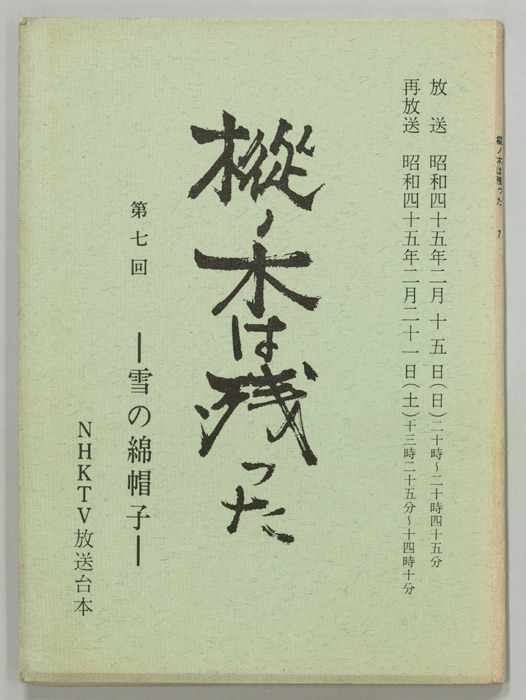 放送 昭和四十五年二月十五日(日)二十時~二十時四十五分
再放送 昭和四十五年二月二十一日(土)十三時二十五分~十四時十分
樅ノ木は残った
第七回 ―雪の綿帽子―
NHKTV放送台本
樅ノ木は残った 7